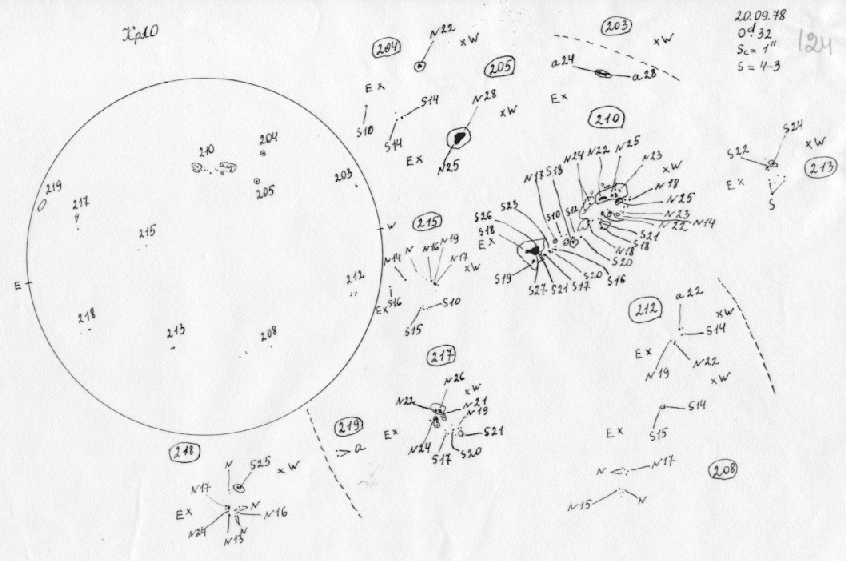 КрАО
20.09.78
Od 32
Sc = 1"
S = 4-3
124
204
N22
x W
E x
S14
S10
S14
205
N28
x W
E x
N25
203
x W
a24
a28
E x
210
N24 N22 N25
N23
x W
N18
N25
N23
N22 N14
S21
S18
N18
S20
N17 S18
S10 S12
S23
S26
S18
E x
S19
S27 S21 S17 S20 S16
213
S24
S22
x W
E x
S
210
204
205
203
219
217
215
W
E
212
218
213
208
215
N14 N N16 N19
N17
x W
E x S16
S10
S15
212
a22
x W
S14
E x
N19
N22
217
N26
x W
N22
N21
N19
E x
N24
S17
S20
S21
219
a
x W
S14
E x
S15
208
N
N17
N15
N
218
N
S25
x W
N17
E x
N
N16
N24
N13
N